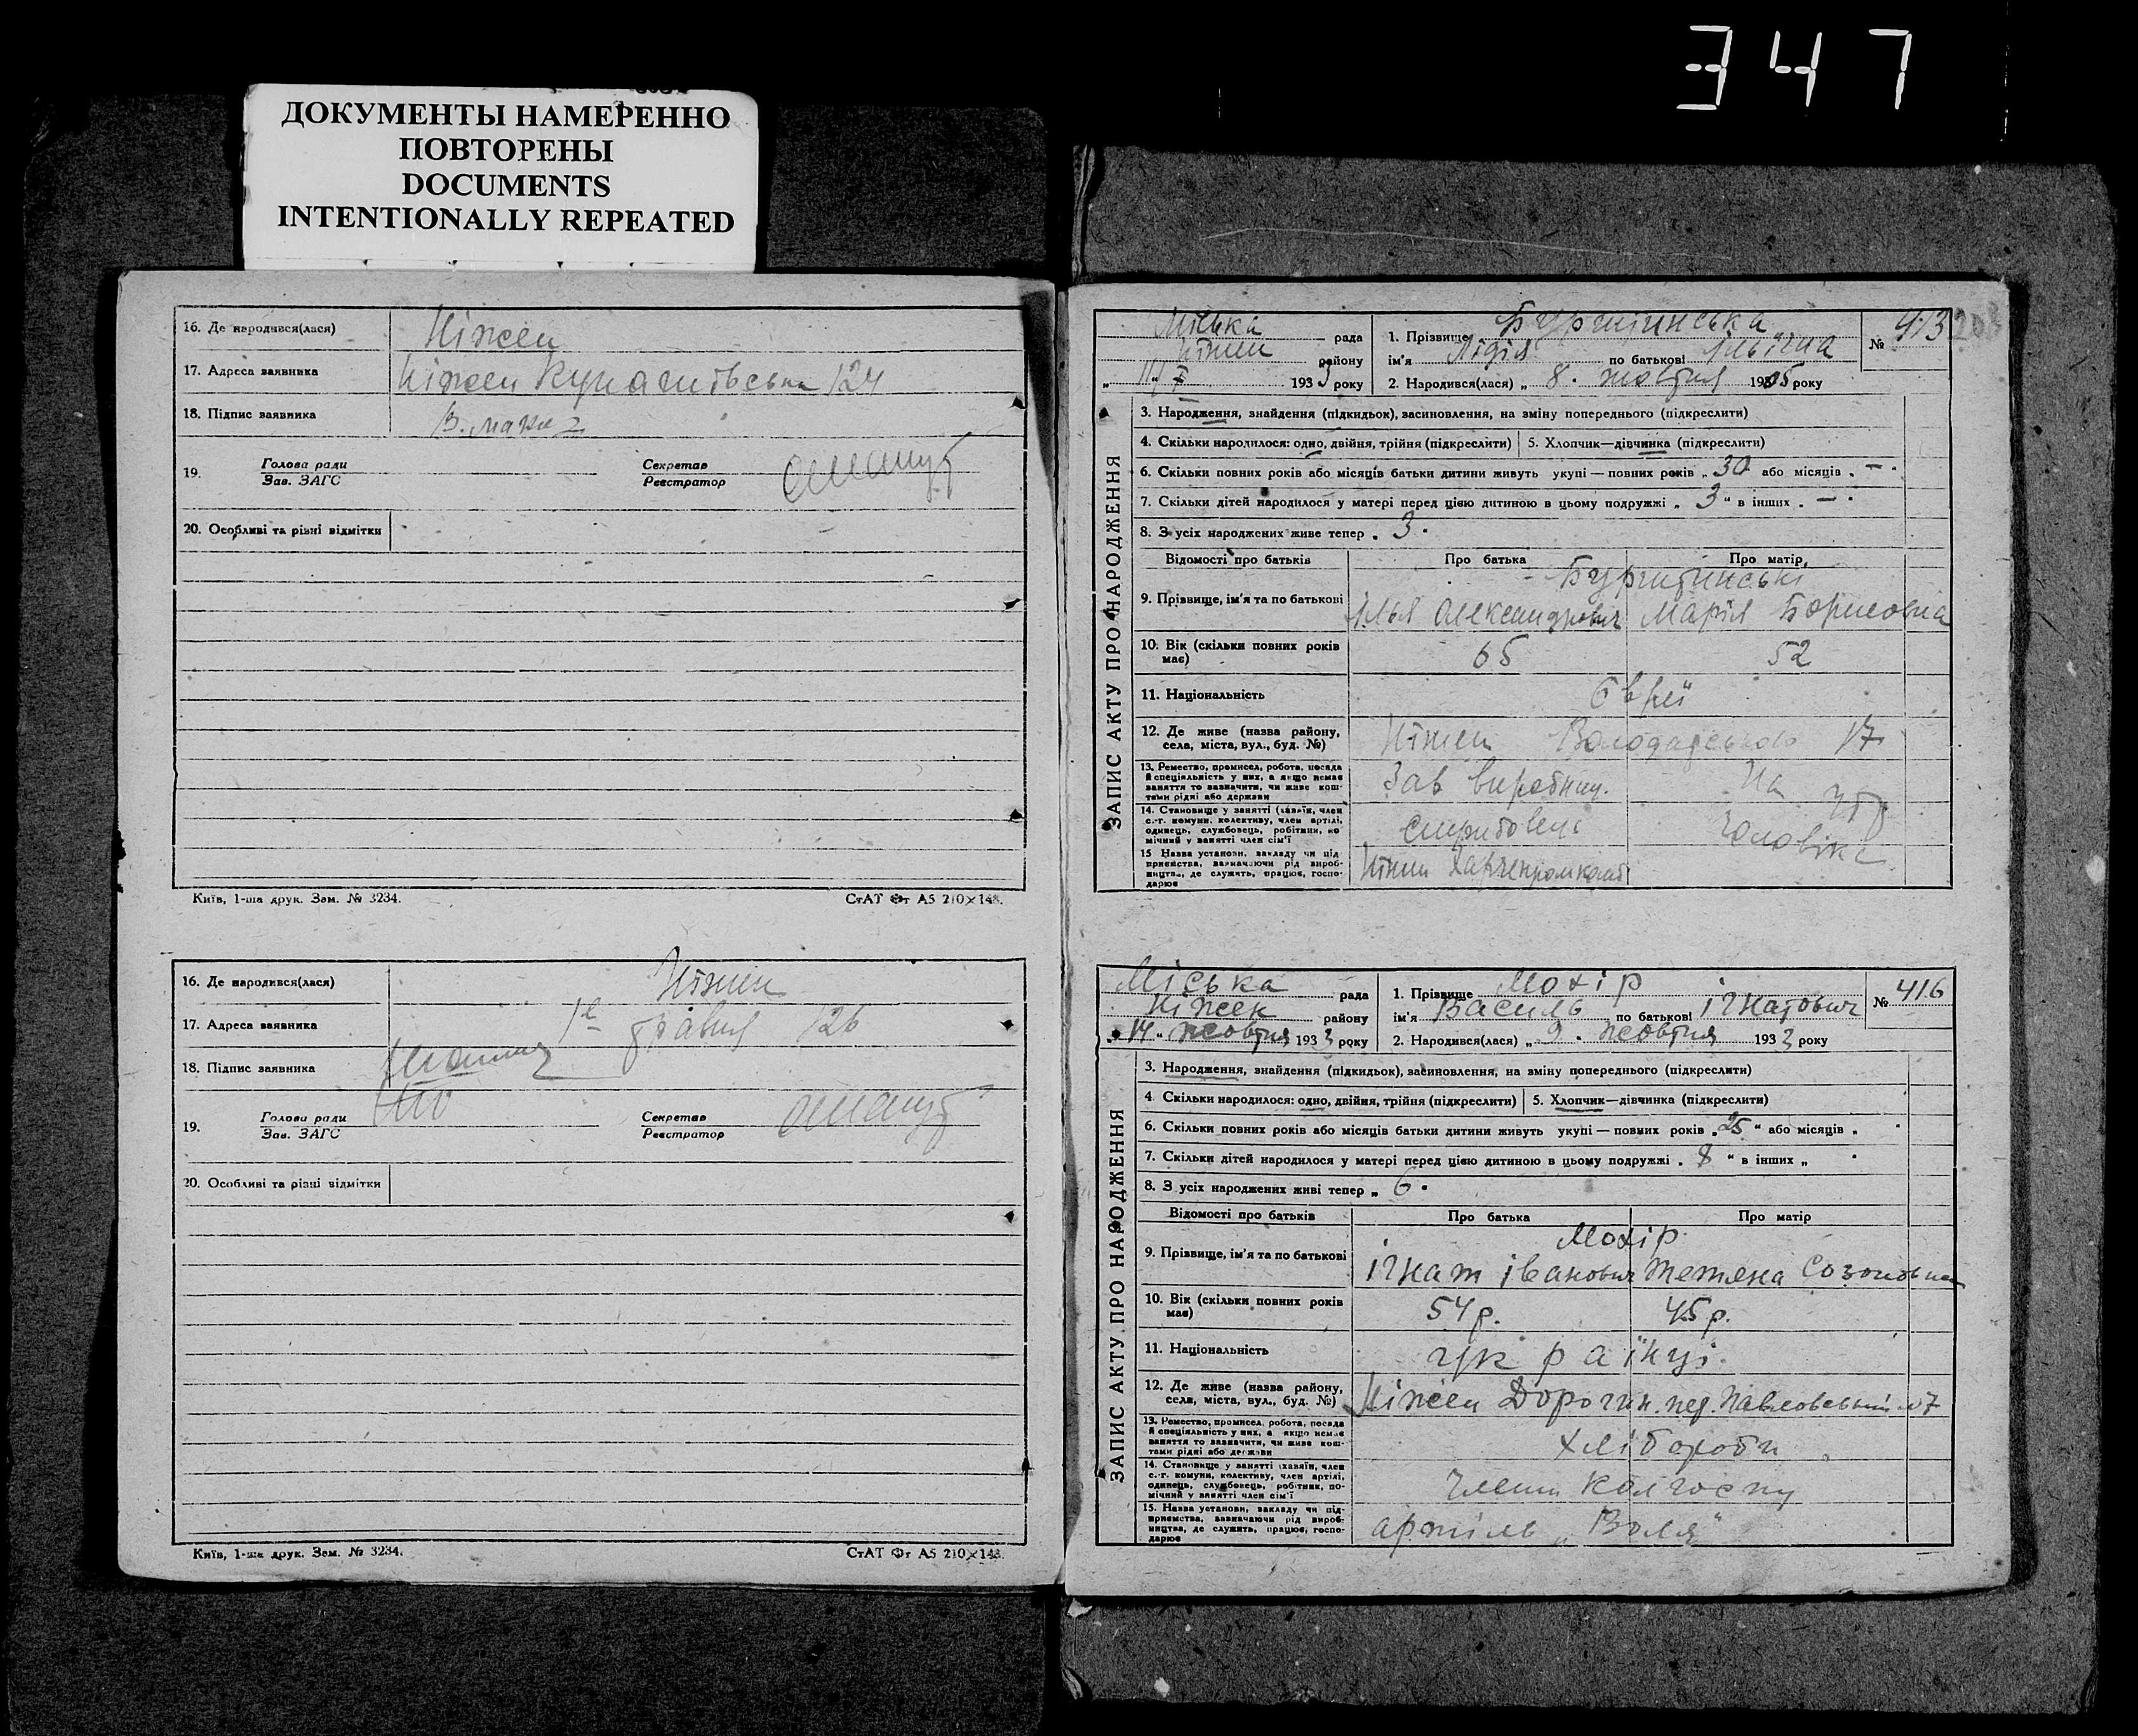 347
ДОКУМЕНТЫ НАМЕРЕННО
ПОВТОРЕНЫ
DOCUMENTS
INTENTIONALLY REPEATED
16. Де народився(лася) Ніжен
17. Адреса заявника Ніжен 124
18. Підпис заявника
19. Голова ради
Зав. ЗАГС
Секретар
Реєстратор
20. Особливі та різні відмітки
Київ, 1-ша друк. Зам. № 3234.
СтАТ Фт А5 210×148.
16. Де народився(лася) Ніжин
17. Адреса заявника 1е травня 126
18. Підпис заявника
19. Голова ради
Зав. ЗАГС
Секретар
Реєстратор
20. Особливі та різні відмітки
Київ, 1-ша друк. Зам. № 3234.
СтАТ Фт А5 210×148.
ЗАПИС АКТУ ПРО НАРОДЖЕННЯ
Міська рада
Ніжин району
193 року
1. Прізвище
ім'я Лідія по батькові Ільїчна
2. Народився(лася) „ 8. жовтня 1905 року
№ 413
203
3. Народження, знайдення (підкидьок), засиновлення, на зміну попереднього (підкреслити)
4. Скільки народилося: одно, двійня, трійня (підкреслити) 5. Хлопчик—дівчинка (підкреслити)
6. Скільки повних років або місяців батьки дитини живуть укупі — повних років „ 30 або місяців „ —
7. Скільки дітей народилося у матері перед цією дитиною в цьому подружжі „ 3 “ в інших „ —
8. З усіх народжених живе тепер „ 3
Відомості про батьків Про батька Про матір
9. Прізвище, ім'я та по батькові Ілья Олександрович Марія Борисовна
10. Вік (скільки повних років має) 65 52
11. Національність Євреї
12. Де живе (назва району, села, міста, вул., буд. №) Ніжен Володарського 17
13. Ремество, промисел, робота, посада й спеціяльність у них, а якщо немає заняття то зазначити, чи живе коштами рідні або держави Зав виробниц. На утр
14. Становище у занятті (хазяїн, член с.-г. комуни, колективу, член артілі, одинець, службовець, робітник, помічний у занятті член сім'ї чоловіка
15 Назва установи, закладу чи підприємства, зазначаючи рід виробництва, де служить, працює, господарює Ніжин
ЗАПИС АКТУ ПРО НАРОДЖЕННЯ
Міська рада
Ніжен району
„ 14 “ жовтня 1933 року
1. Прізвище Мохір
ім'я Василь по батькові ігнатович
2. Народився(лася) „ 9. жовтня 1933 року
№ 416
3. Народження, знайдення (підкидьок), засиновлення, на зміну попереднього (підкреслити)
4 Скільки народилося: одно, двійня, трійня (підкреслити) 5. Хлопчик—дівчинка (підкреслити)
6. Скільки повних років або місяців батьки дитини живуть укупі — повних років „ 25 “ або місяців „
7. Скільки дітей народилося у матері перед цією дитиною в цьому подружжі „ 8 “ в інших „
8. З усіх народжених живі тепер „ 6
Відомості про батьків Про батька Про матір
Мохір
9. Прізвище, ім'я та по батькові ігнат іванович Тетяна Созоновна
10. Вік (скільки повних років має) 54р. 45р.
11. Національність українці
12. Де живе (назва району, села, міста, вул., буд. №) Ніжен 7
13. Ремество, промисел, робота, посада й спеціяльність у них, а якщо немає заняття то зазначити, чи живе коштами рідні або держави хлібороби
14. Становище у занятті (хазяїн, член с.-г. комуни, колективу, член артілі, одинець, службовець, робітник, помічний у занятті член сім'ї члени колгоспу
15. Назва установи, закладу чи підприємства, зазначаючи рід виробництва, де служить, працює, господарює артіль „Воля“